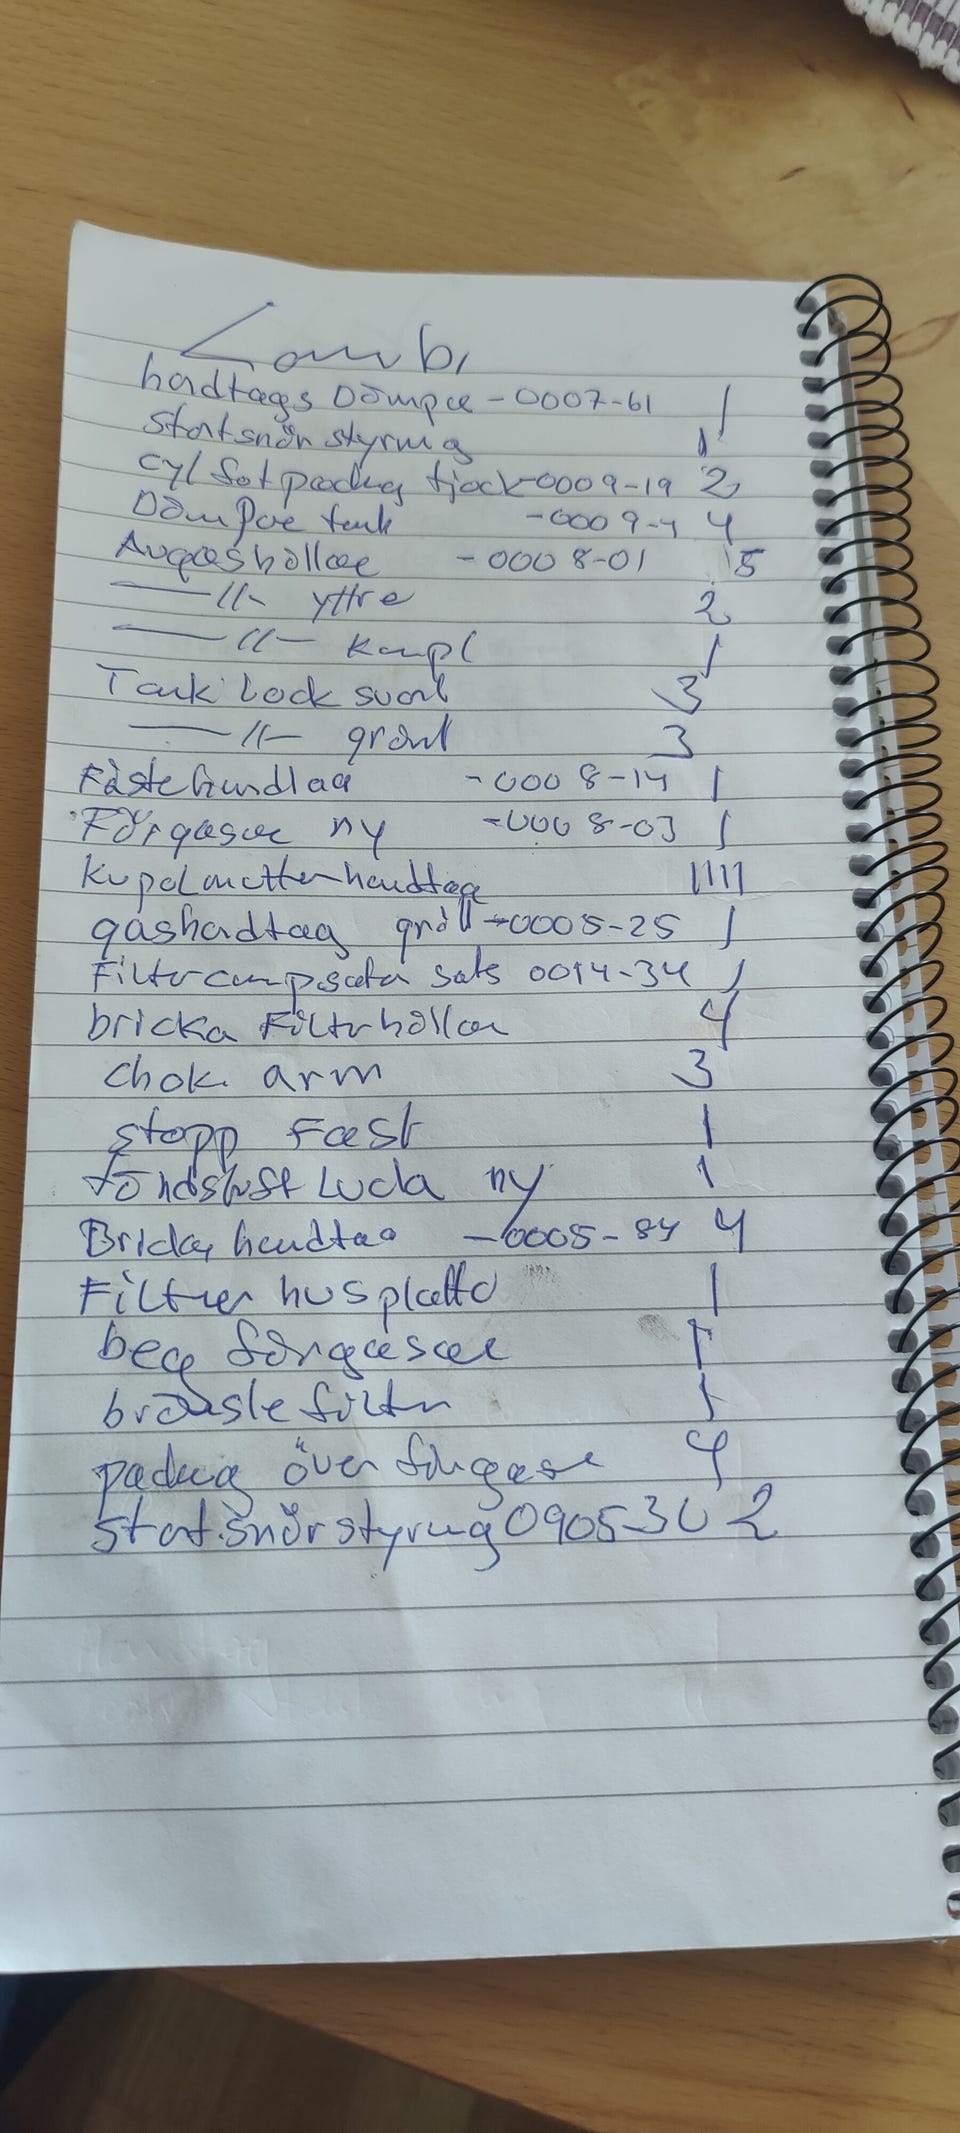 Combi
hadtags Dämpae -0007-61 1
Statsnör styrnig 1
cyl fotpackng tjock-0009-19 2
Dämpae tank -0009-4 4
Avgashållae -0008-01 5
—//— yttre 2
—//— kompl 1
Tank lock svart 3
—//— grönt 3
Fäste handtag -0008-14 1
Förgasae ny -0008-03 1
Kupolmutter handtag 1111
gashadtag grå -0005-25 1
Filter sats 0014-34 1
bricka Filterhållae 4
chok arm 3
stopp Fäst 1
Lucka ny 1
Bricka handtag -0005-84 4
Filter husplatta 1
beg förgasae 1
bränsle filter 1
packng över förgase 4
stat.snörstyrng 090530 2